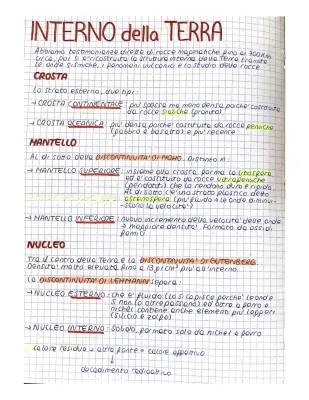 INTERNO della TERRA
Abbiamo testimonianze dirette di rocce magmatiche fino ai 300km
circa, poi si è ricostruita la struttura interna della Terra tramite
le onde sismiche, i fenomeni vulcanici e lo studio delle rocce
CROSTA
Lo strato esterno, due tipi:
→ CROSTA CONTINENTALE: più spessa ma meno densa perché costituita
da rocce sialiche (granito).
→ CROSTA OCEANICA: più densa perché costituita da rocce femiche
(gabbro e basalto) e più recente
MANTELLO
Al di sotto della DISCONTINUITA' DI MOHO. Distinto in:
→ MANTELLO SUPERIORE: insieme alla crosta forma la litosfera
ed è costituito da rocce ultrafemiche
(peridotiti) che la rendono dura e rigida
Al di sotto c'è uno strato plastico detto
astenosfera (più fluido → le onde diminui-
scono la velocità)
→ MANTELLO INFERIORE: nuovo incremento della velocità delle onde
→ maggiore densità. Formato da ossidi
femici
NUCLEO
Tra il centro della Terra e la DISCONTINUITA' DI GUTENBERG
Densità molto elevata fino a 13 g/cm³ più all'interno.
La DISCONTINUITA' DI LEHMANN separa:
→ NUCLEO ESTERNO: che è fluido (lo si capisce perché le onde
S non lo attraversano) ed oltre a ferro e
nichel contiene anche elementi più leggeri
(silicio e zolfo)
→ NUCLEO INTERNO: solido, formato solo da nichel e ferro
calore residuo + altra fonte = calore effettivo
↓
decadimento radioattivo